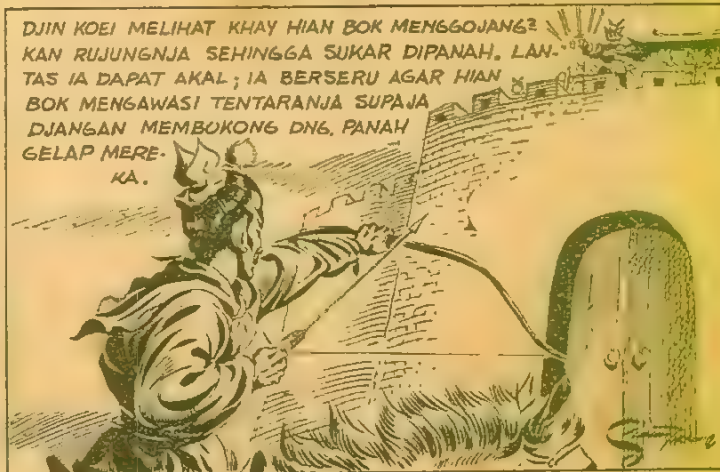 DJIN KOEI MELIHAT KHAY HIAN BOK MENGGOJANG2
KAN RUJUNGNJA SEHINGGA SUKAR DIPANAH. LAN-
TAS IA DAPAT AKAL; IA BERSERU AGAR HIAN
BOK MENGAWASI TENTARANJA SUPAJA
DJANGAN MEMBUKONG DNG. PANAH
GELAP MERE-
KA.